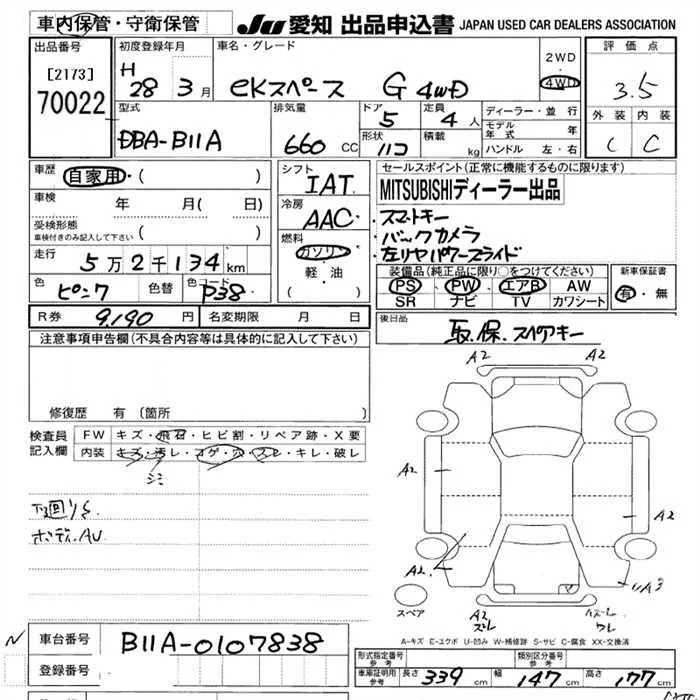 車内保管・守衛保管
JU 愛知 出品申込書 JAPAN USED CAR DEALERS ASSOCIATION
出品番号
[2173]
70022
初度登録年月
H 28 年 3 月
車名・グレード
eKスペース G 4WD
2WD
4WD
評価点
3.5
外装 内装
C C
型式
DBA-B11A
排気量
660 CC
ドア
5
形状
定員
4 人
積載
kg
ディーラー・並行
モデル年式 年
ハンドル 左・右
車歴 自家用・( )
車検 年 月( 日)
受検形態
車検付きのみ記入して下さい ( )
走行 5万2千134 km
色 ピンク 色替 色コード P38
シフト
IAT
冷房
AAC
燃料
ガソリン
軽・油
セールスポイント(正常に機能するものに限ります)
MITSUBISHIディーラー出品
・スマートキー
・バックカメラ
・左リヤパワースライド
装備品(純正品に限り○をつけてください)
PS PW エアB AW
SR ナビ TV カワシート
新車保証書
有・無
R券 9,190 円 名変期限 月 日
後日品
取.保.スペアキー
注意事項申告欄(不具合内容等は具体的に記入して下さい)
修復歴 有 (箇所 )
検査員記入欄
FW キズ・飛石・ヒビ割・リペア跡・X要
内装 キズ・汚レ・コゲ・穴・スレ・キレ・破レ
シミ
下回りS
ボディAU
A2 A2
A2
A2
A2
A3
スペア
A2
A-キズ E-エクボ U-凹み W-補修跡 S-サビ C-腐食 XX-交換済
車台番号 B11A-0107838
登録番号
形式指定番号 参考
類別区分番号 参考
車庫証明用 参考 長さ 339 cm 幅 147 cm 高さ 177 cm